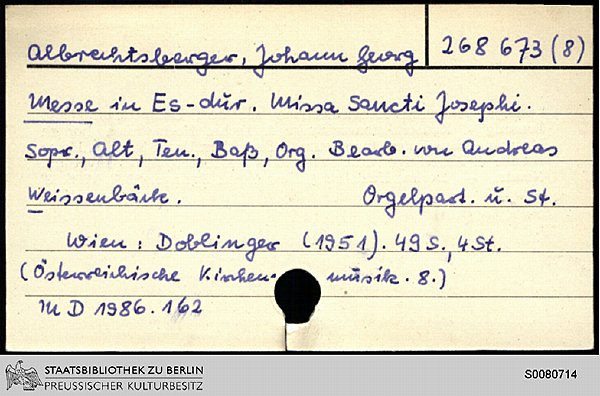 Albrechtsberger, Johann Georg 268 673 (8)
Messe in Es-dur. Missa Sancti Josephi.
Sopr., Alt, Ten., Baß, Org. Bearb. von Andreas
Weissenbäck. Orgelpart. u. St.
Wien: Doblinger (1951). 49 S., 4 St.
(Österreichische Kirchenmusik. 8.)
M D 1986. 162
STAATSBIBLIOTHEK ZU BERLIN
PREUSSISCHER KULTURBESITZ
S0080714